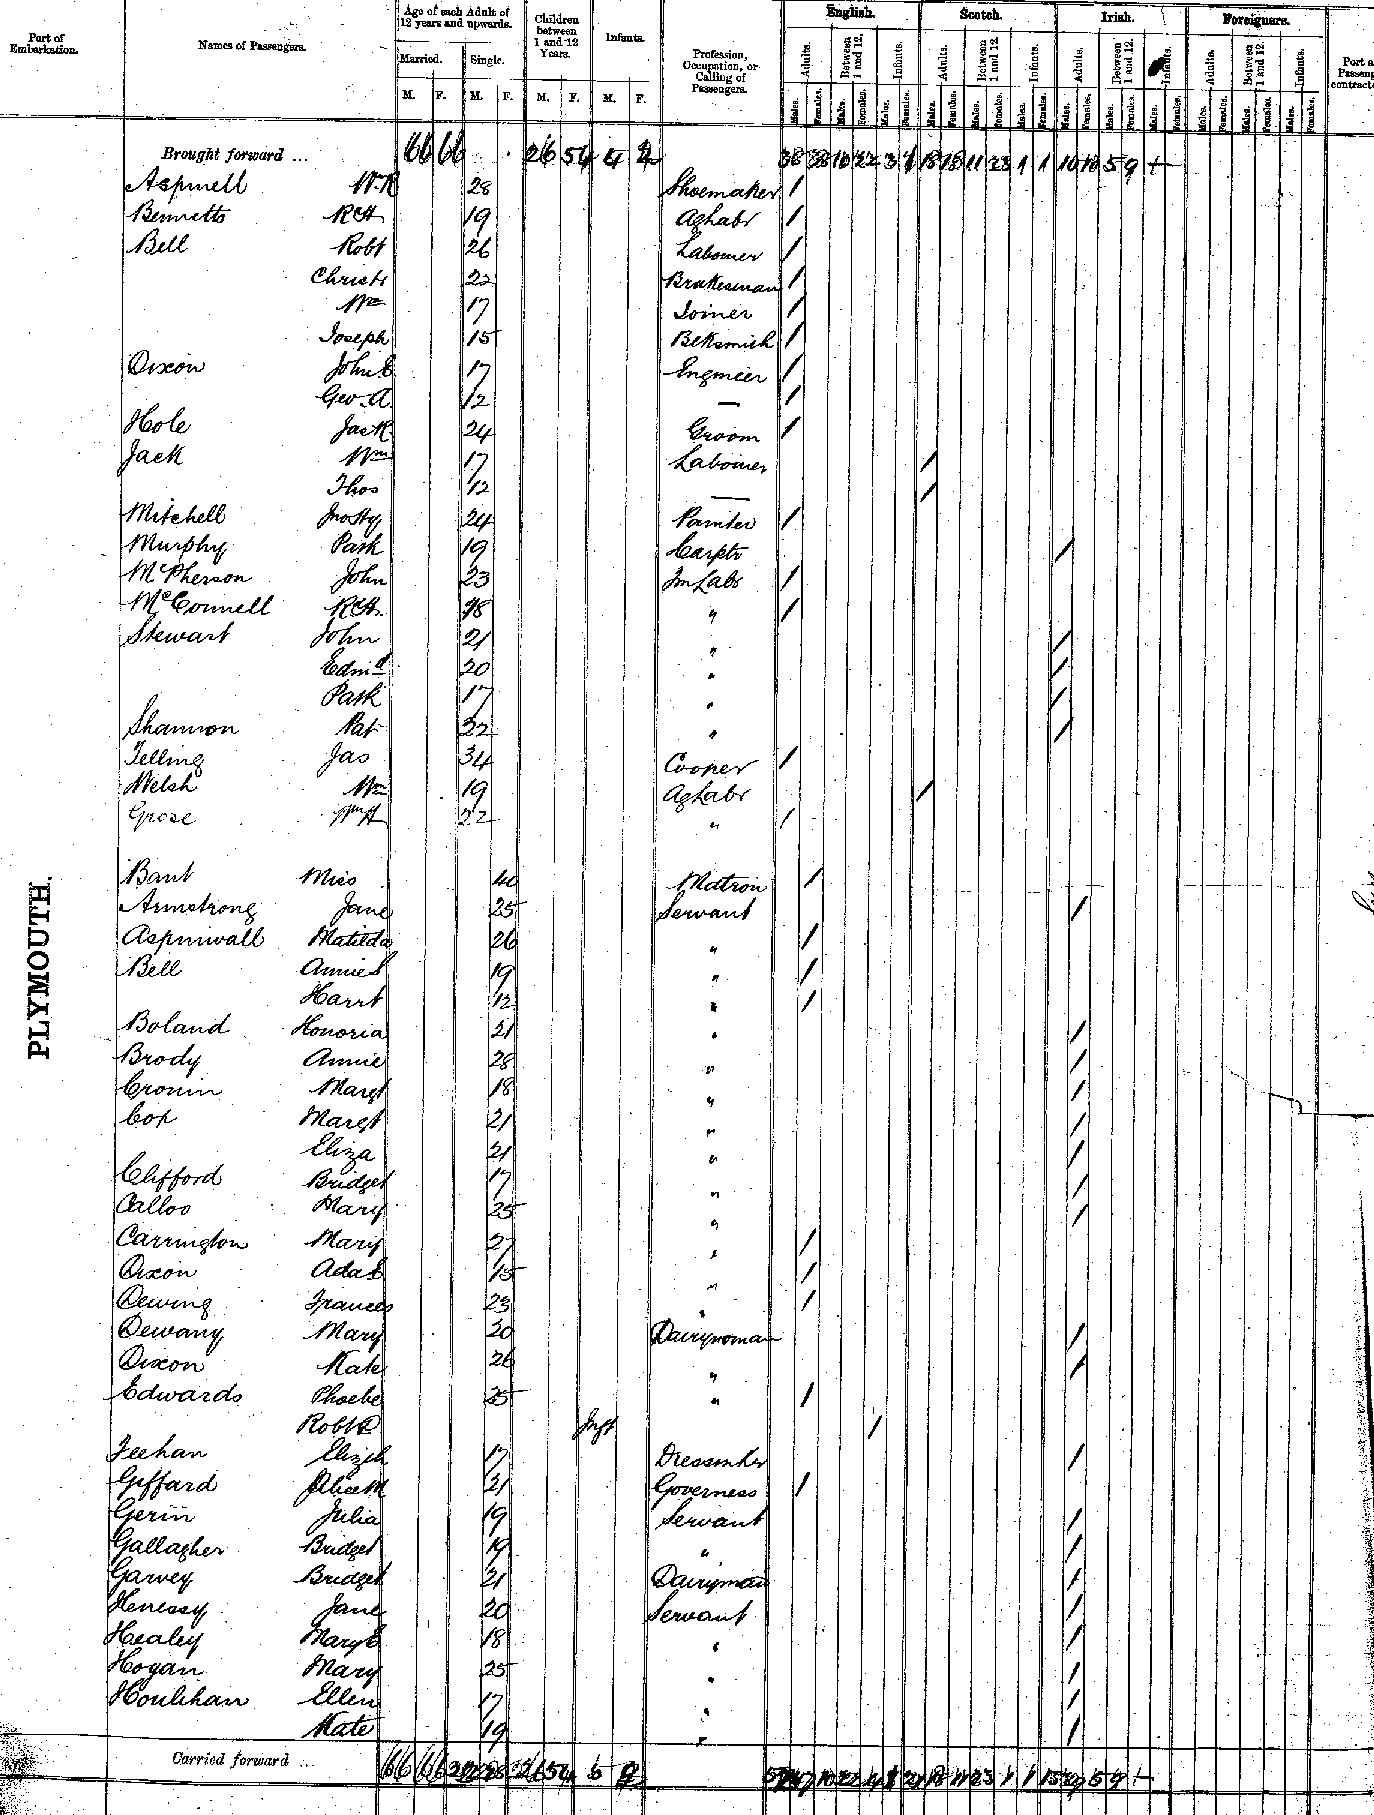 Port of Embarkation.
Names of Passengers.
Age of each Adult of 12 years and upwards.
Married. Single.
M. F. M. F.
Children between 1 and 12 Years.
M. F.
Infants.
M. F.
Profession, Occupation, or Calling of Passengers.
English. Scotch. Irish. Foreigners.
Adults. Between 1 and 12. Infants. Adults. Between 1 and 12. Infants. Adults. Between 1 and 12. Infants. Adults. Between 1 and 12. Infants.
Males. Females. Males. Females. Males. Females. Males. Females. Males. Females. Males. Females. Males. Females. Males. Females. Males. Females. Males. Females. Males. Females. Males. Females.
Brought forward ... 66 66 26 54 4 2 38 38 10 22 3 1 18 18 11 23 1 1 10 10 5 9
PLYMOUTH.
Aspinell 28 Shoemaker /
Bennetts Rd 19 Ag Labr /
Bell Robt 26 Labourer /
Christr 22 Brakesman /
Wm 17 Joiner /
Joseph 15 Blksmith /
Dixon John E 17 Engineer /
Geo. A. 12 — /
Hole Jack 24 Groom /
Jack Wm 17 Labourer /
Thos 12 — /
Mitchell 24 Painter /
Murphy Patk 19 Carptr /
McPherson John 23 Fm Labr /
McConnell 18 " /
Stewart John 21 " /
Edmd 20 " /
Patk 17 " /
Shannon Pat 22 " /
Telling Jas 34 Cooper /
Welsh Wm 19 Ag Labr /
Grose Wm H 22 " /
Bant Miss 40 Matron /
Armstrong Jane 25 Servant /
Aspinwall Matilda 26 " /
Bell Annie S 19 " /
Harrt 12 " /
Boland Honoria 21 " /
Brody Annie 28 " /
Cronin Margt 18 " /
Cox Margt 21 " /
Eliza 21 " /
Clifford Bridget 17 " /
Calloo Mary 25 " /
Carrington Mary 27 " /
Dixon Ada E 15 " /
Dewing Frances 23 " /
Dewany Mary 20 Dairywoman /
Dixon Kate 26 " /
Edwards Phoebe 25 " /
Robt Inft /
Feehan Elizth 17 Dressmkr /
Giffard Alice M 21 Governess /
Gerin Julia 19 Servant /
Gallagher Bridget 19 " /
Garvey Bridget 21 Dairyman /
Henessy Jane 20 Servant /
Healey Mary E 18 " /
Hogan Mary 25 " /
Houlihan Ellen 17 " /
Kate 19 " /
Carried forward ... 66 66 26 54 5